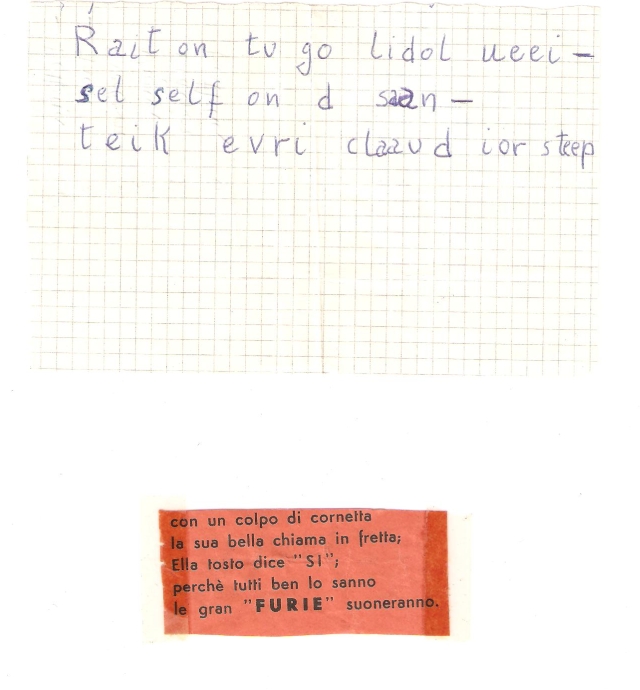 Rait on tu go lidol ueei -
sel self on d saan -
teik evri claaud ior steep
con un colpo di cornetta
la sua bella chiama in fretta;
Ella tosto dice "SI";
perchè tutti ben lo sanno
le gran "FURIE" suoneranno.